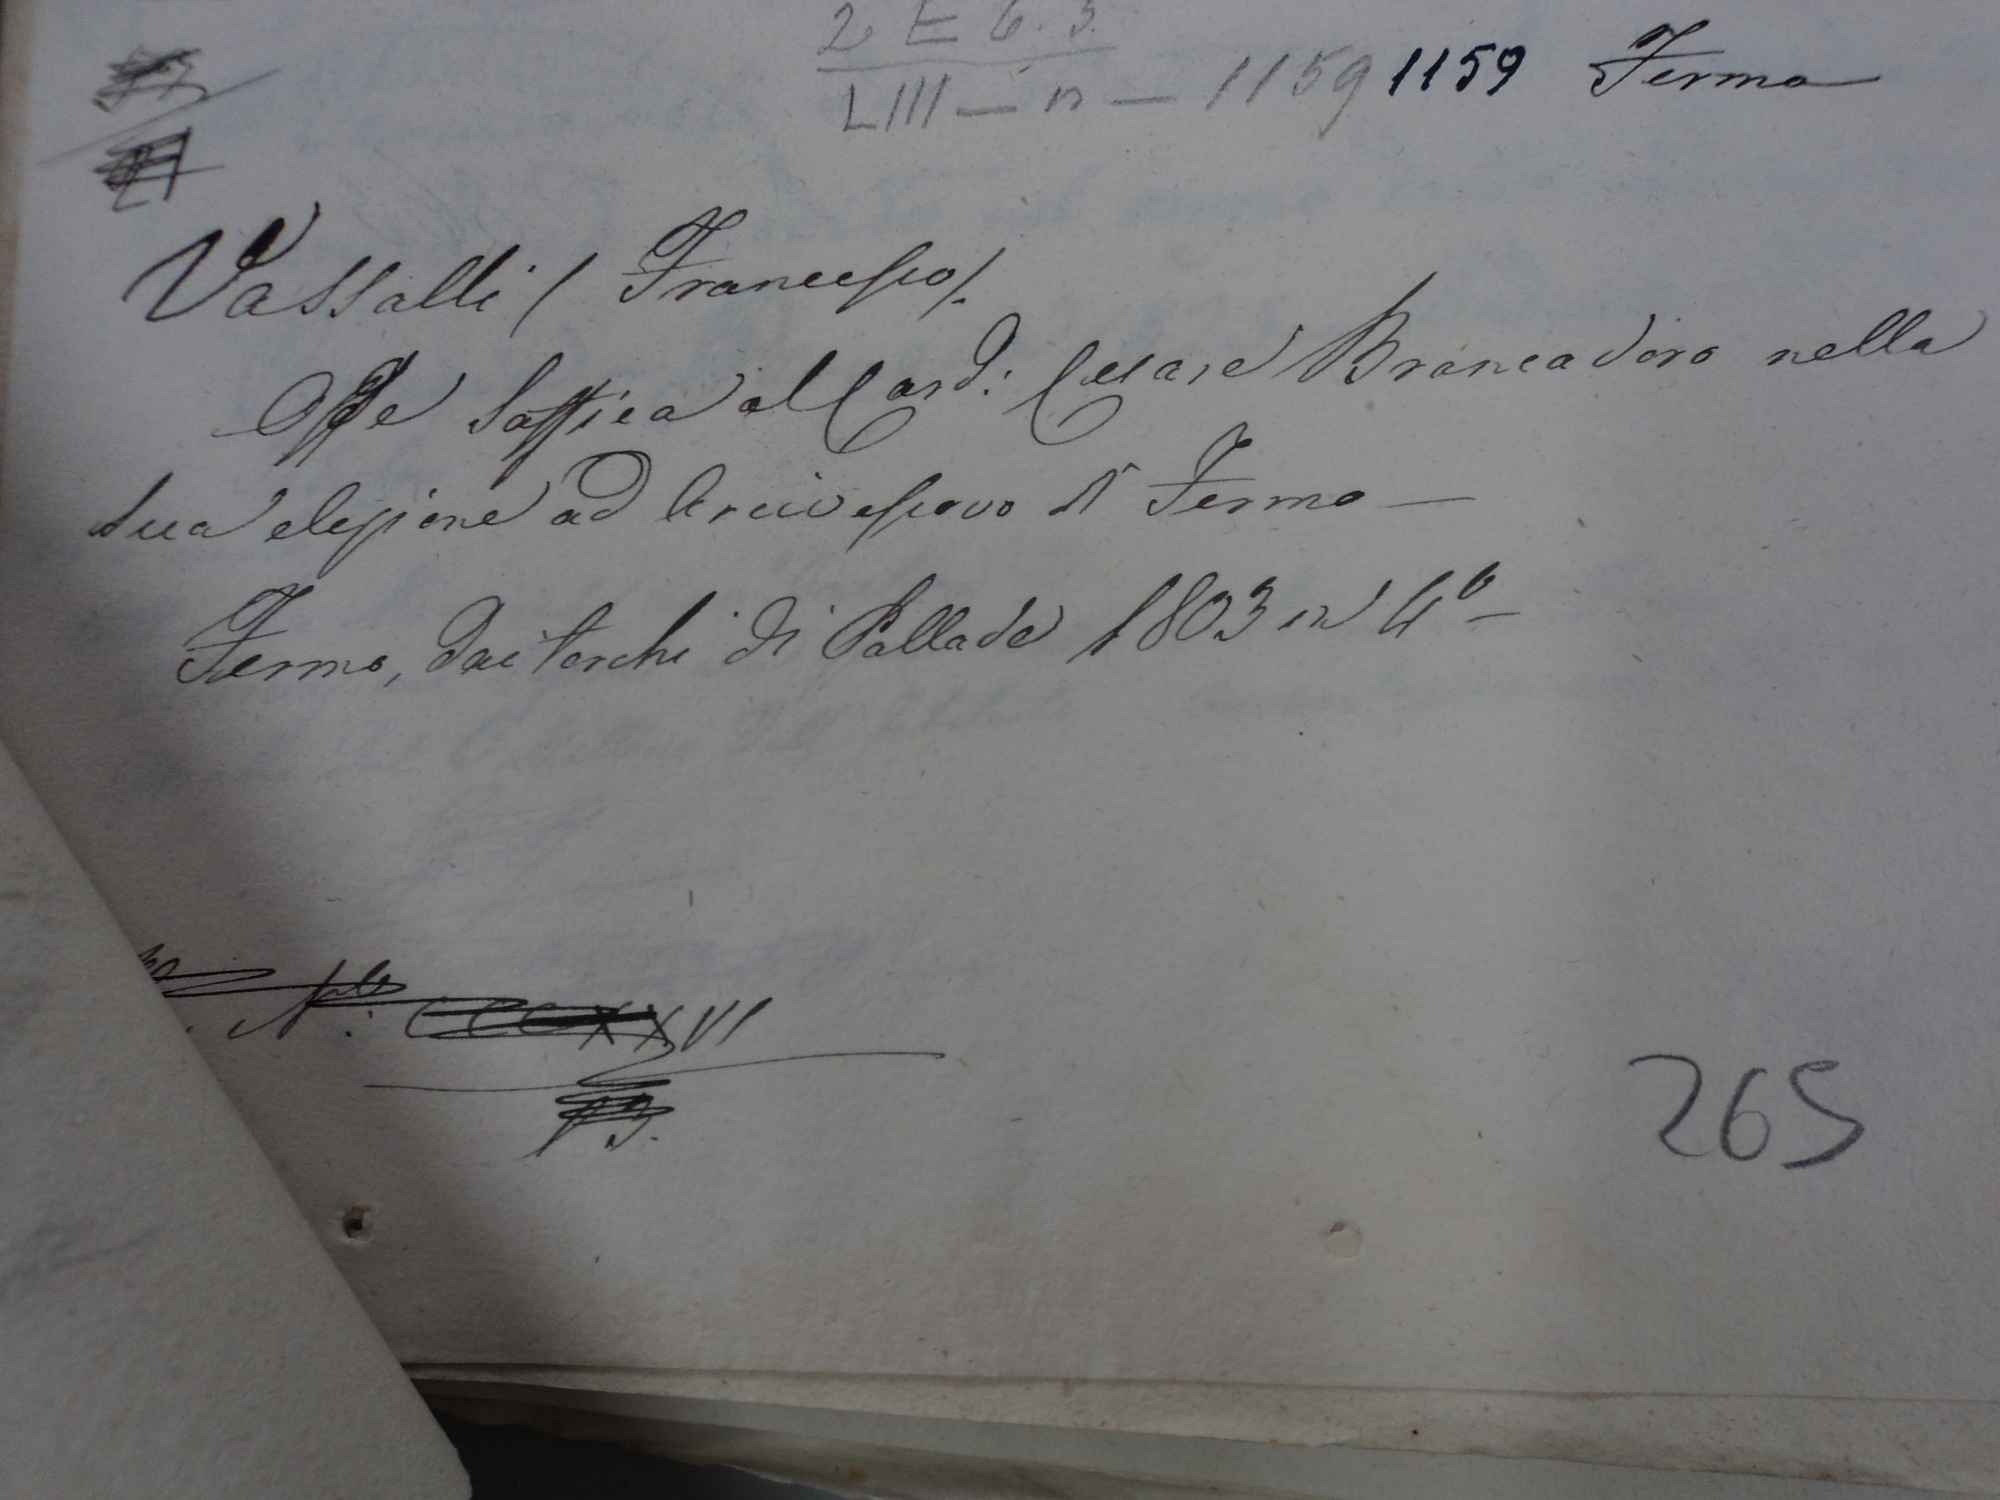 2 E 6.3.
LIII - n - 1159 1159 Fermo
Vassalli (Francesco).
Ode Saffica al Card: Cesare Brancadoro nella
sua elezione ad Arcivescovo di Fermo
Fermo, dai torchi di Pallade 1803 in 4º
N.º: CCCXXVI
265